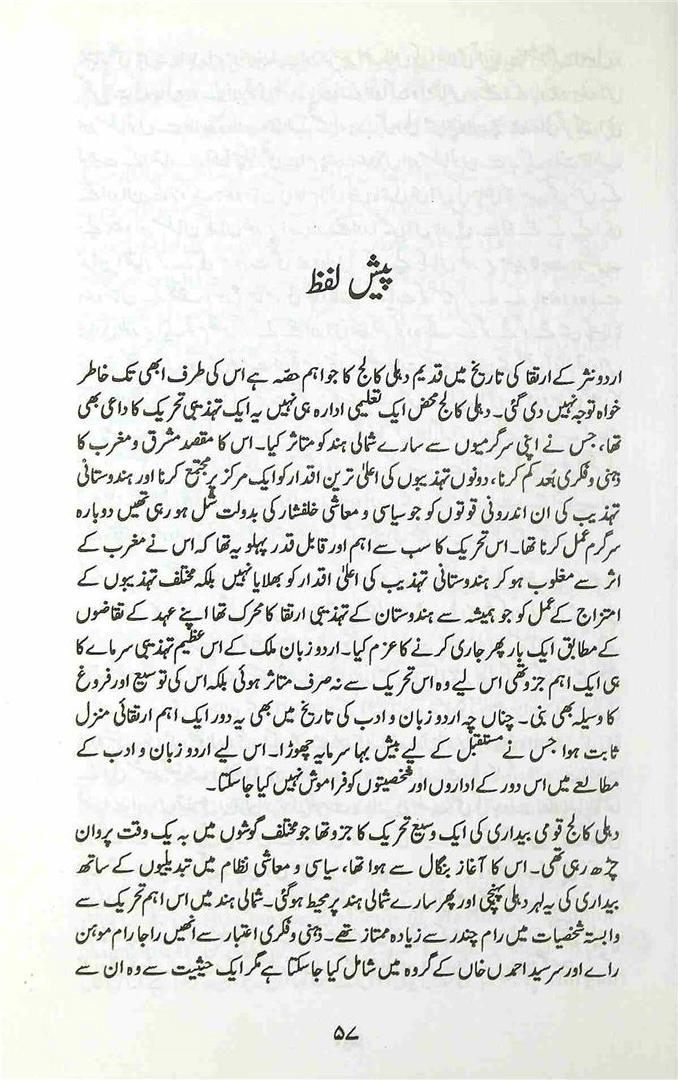 پیش لفظ
اردو نثر کے ارتقا کی تاریخ میں قدیم دہلی کالج کا جو اہم حصّہ ہے اس کی طرف ابھی تک خاطر
خواہ توجہ نہیں دی گئی۔ دہلی کالج محض ایک تعلیمی ادارہ ہی نہیں یہ ایک تہذیبی تحریک کا داعی بھی
تھا، جس نے اپنی سرگرمیوں سے سارے شمالی ہند کو متاثر کیا۔ اس کا مقصد مشرق و مغرب کا
ذہنی و فکری بُعد کم کرنا، دونوں تہذیبوں کی اعلیٰ ترین اقدار کو ایک مرکز پر مجتمع کرنا اور ہندوستانی
تہذیب کی ان اندرونی قوتوں کو جو سیاسی و معاشی خلفشار کی بدولت شل ہو رہی تھیں دوبارہ
سرگرم عمل کرنا تھا۔ اس تحریک کا سب سے اہم اور قابل قدر پہلو یہ تھا کہ اس نے مغرب کے
اثر سے مغلوب ہو کر ہندوستانی تہذیب کی اعلیٰ اقدار کو بھلایا نہیں بلکہ مختلف تہذیبوں کے
امتزاج کے عمل کو جو ہمیشہ سے ہندوستان کے تہذیبی ارتقا کا محرک تھا اپنے عہد کے تقاضوں
کے مطابق ایک بار پھر جاری کرنے کا عزم کیا۔ اردو زبان ملک کے اس عظیم تہذیبی سرمایے کا
ہی ایک اہم جزو تھی اس لیے وہ اس تحریک سے نہ صرف متاثر ہوئی بلکہ اس کی توسیع اور فروغ
کا وسیلہ بھی بنی۔ چناں چہ اردو زبان و ادب کی تاریخ میں بھی یہ دور ایک اہم ارتقائی منزل
ثابت ہوا جس نے مستقبل کے لیے بیش بہا سرمایہ چھوڑا۔ اس لیے اردو زبان و ادب کے
مطالعے میں اس دور کے اداروں اور شخصیتوں کو فراموش نہیں کیا جا سکتا۔
دہلی کالج قومی بیداری کی ایک وسیع تحریک کا جزو تھا جو مختلف گوشوں میں بہ یک وقت پروان
چڑھ رہی تھی۔ اس کا آغاز بنگال سے ہوا تھا، سیاسی و معاشی نظام میں تبدیلیوں کے ساتھ
بیداری کی یہ لہر دہلی پہنچی اور پھر سارے شمالی ہند پر محیط ہو گئی۔ شمالی ہند میں اس اہم تحریک سے
وابستہ شخصیات میں رام چندر سے زیادہ ممتاز تھے۔ ذہنی و فکری اعتبار سے انھیں راجا رام موہن
راے اور سرسید احمد ں خاں کے گروہ میں شامل کیا جا سکتا ہے مگر ایک حیثیت سے وہ ان سے
۵۷